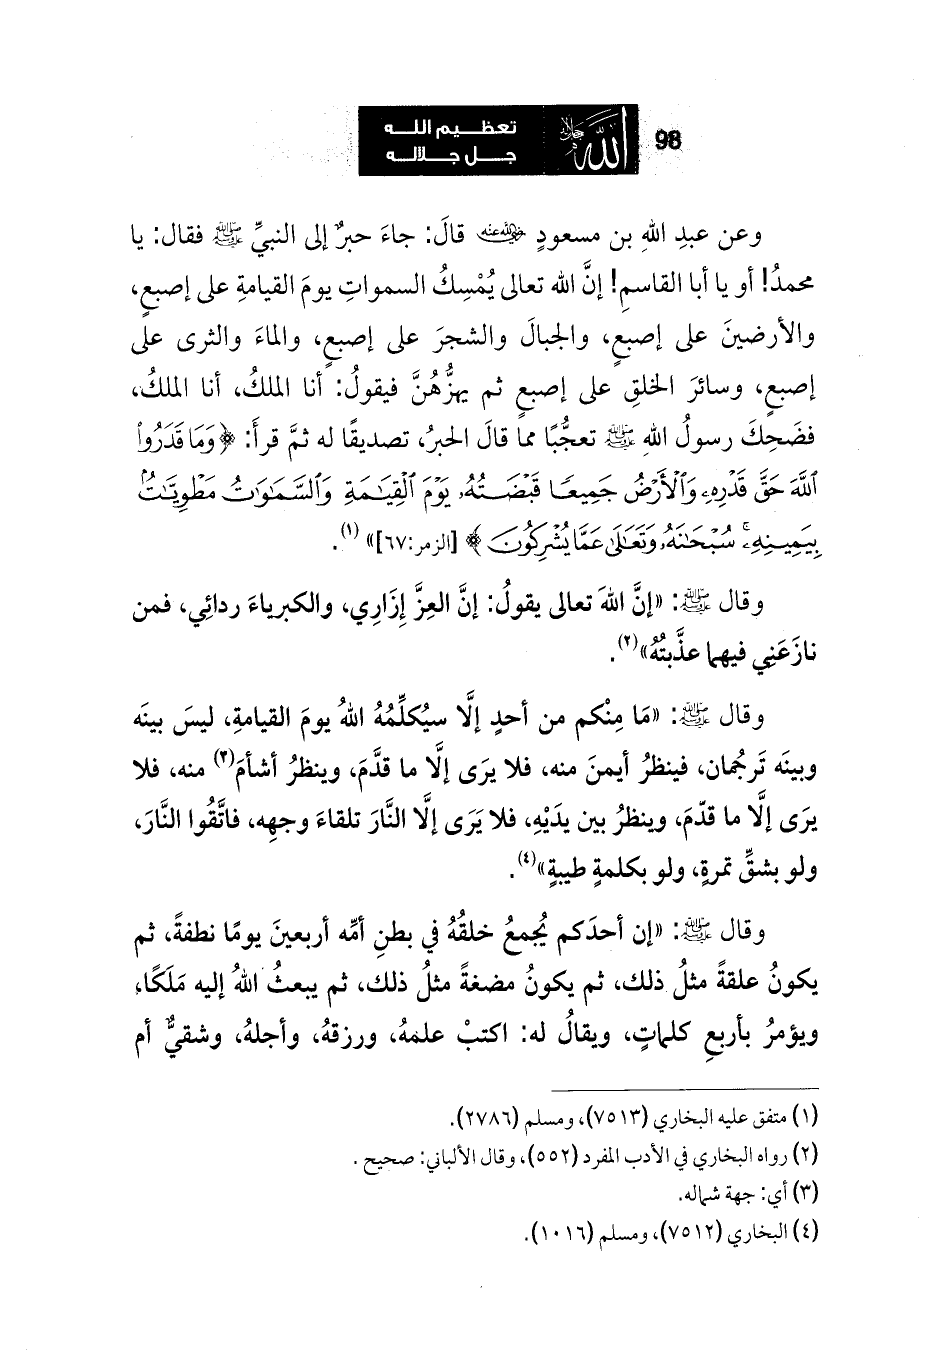 98
الله جل جلاله
تعظيم الله
جل جلاله
وعن عبدِ اللهِ بن مسعودٍ رضي الله عنه قالَ: جاءَ حبرٌ إلى النبيِّ ﷺ فقال: يا
محمدُ! أو يا أبا القاسمِ! إنَّ الله تعالى يُمْسِكُ السمواتِ يومَ القيامةِ على إصبعٍ،
والأرضينَ على إصبعٍ، والجبالَ والشجرَ على إصبعٍ، والماءَ والثرى على
إصبعٍ، وسائرَ الخلقِ على إصبعٍ ثم يهزُّهُنَّ فيقولُ: أنا الملكُ، أنا الملكُ،
فضَحِكَ رسولُ اللهِ ﷺ تعجُّبًا مما قالَ الحبرُ، تصديقًا له ثمَّ قرأَ: ﴿وَمَا قَدَرُوا۟
ٱللَّهَ حَقَّ قَدْرِهِۦ وَٱلْأَرْضُ جَمِيعًا قَبْضَتُهُۥ يَوْمَ ٱلْقِيَٰمَةِ وَٱلسَّمَٰوَٰتُ مَطْوِيَّٰتٌۢ
بِيَمِينِهِۦ ۚ سُبْحَٰنَهُۥ وَتَعَٰلَىٰ عَمَّا يُشْرِكُونَ﴾ [الزمر:٦٧]»(١).
وقال ﷺ: «إنَّ اللهَ تعالى يقولُ: إنَّ العِزَّ إِزَارِي، والكبرياءَ ردائِي، فمن
نازَعَنِي فيهما عذَّبتُهُ»(٢).
وقال ﷺ: «مَا مِنْكم من أحدٍ إلَّا سيُكلِّمُهُ اللهُ يومَ القيامةِ، ليسَ بينَه
وبينَه تَرجُمان، فينظرُ أيمنَ منه، فلا يرَى إلَّا ما قدَّمَ، وينظرُ أشأمَ(٣) منه، فلا
يرَى إلَّا ما قدّمَ، وينظرُ بين يدَيْهِ، فلا يَرَى إلَّا النَّارَ تلقاءَ وجهِه، فاتَّقُوا النَّارَ،
ولو بشقِّ تمرةٍ، ولو بكلمةٍ طيبةٍ»(٤).
وقال ﷺ: «إن أحدَكم يُجمعُ خلقُهُ في بطنِ أمِّه أربعينَ يومًا نطفةً، ثم
يكونُ علقةً مثلُ ذلك، ثم يكونُ مضغةً مثلُ ذلك، ثم يبعثُ اللهُ إليه مَلَكًا،
ويؤمرُ بأربعِ كلماتٍ، ويقالُ له: اكتبْ علمهُ، ورزقهُ، وأجلهُ، وشقيٌّ أم
(١) متفق عليه البخاري (٧٥١٣)، ومسلم (٢٧٨٦).
(٢) رواه البخاري في الأدب المفرد (٥٥٢)، وقال الألباني: صحيح .
(٣) أي: جهة شماله.
(٤) البخاري (٧٥١٢)، ومسلم (١٠١٦).